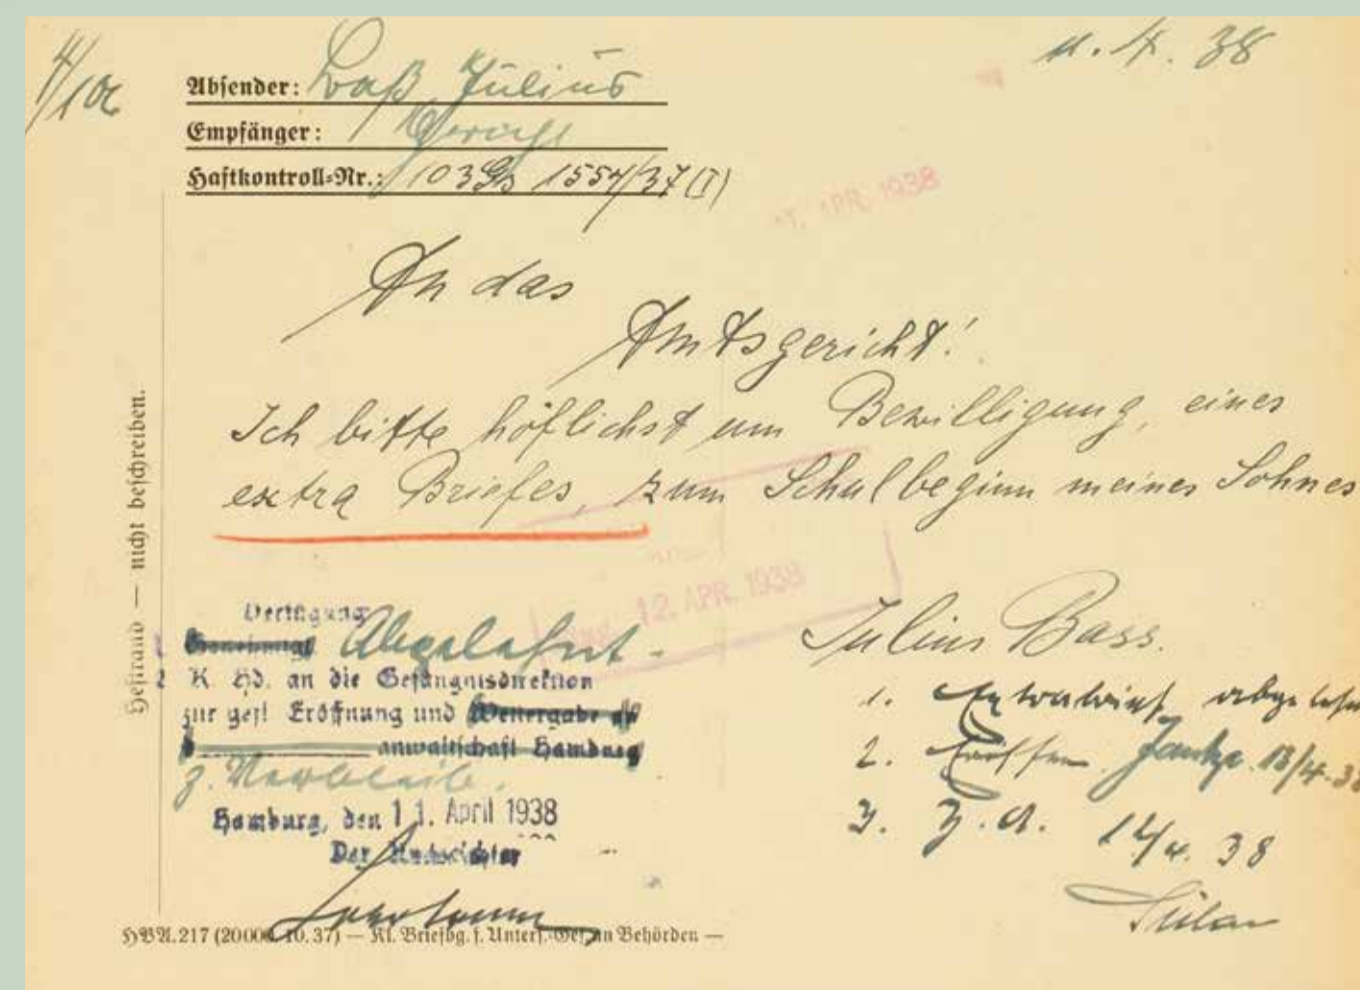 11. 4. 38
Absender: Baß Julius
Empfänger: Gericht
Haftkontroll-Nr.: 103 Gs 1557/37 (I)
11. APR. 1938
An das
Amtsgericht!
Ich bitte höflichst um Bewilligung, eines
extra Briefes, zum Schulbeginn meines Sohnes
12. APR. 1938
Julius Bass.
Heftrand — nicht beschreiben.
Verfügung
1 Genehmigt Abgelehnt.
2 K. Hd. an die Gefängnisdirektion
zur gefl Eröffnung und Weitergabe an
anwaltschaft Hamburg
z. Verbleib.
Hamburg, den 11. April 1938
Der
1. Extrabrief abgelehnt
2. Eröffnen 13/4. 38
3. Z. d. A. 14/4. 38
HBA. 217 (20000. 10. 37) — Kl. Briefbg. f. Unters.-Gef. an Behörden —